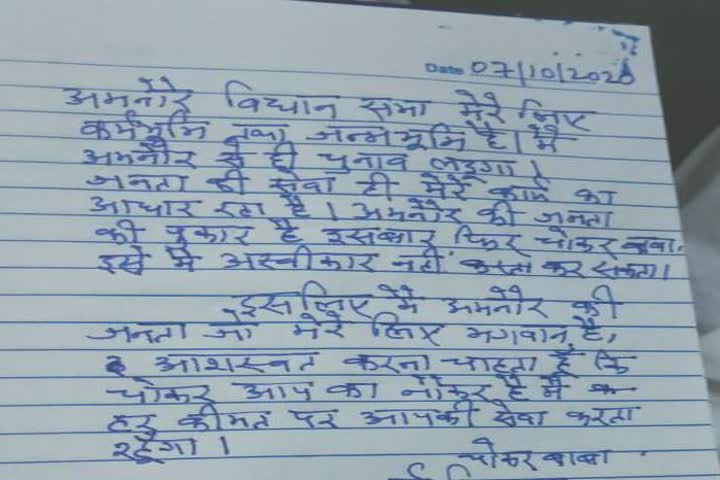 Date 07/10/2020
अमनौर विधान सभा मेरे लिए
कर्मभूमि तथा जन्मभूमि है। मैं
अमनौर से ही चुनाव लडूगा।
जनता की सेवा ही मेरे कार्य का
आधार रहा है। अमनौर की जनता
की पुकार है इसबार फिर चोकर बाबा.
इसे मै अस्वीकार नहीं करता कर सकता।
इसलिए मैं अमनौर की
जनता जो मेरे लिए भगवान है,
आशस्वत करना चाहता हूँ कि
चोकर आप का नौकर है मैं
हर कीमत पर आपकी सेवा करता
रहूँगा।
चोकर बाबा